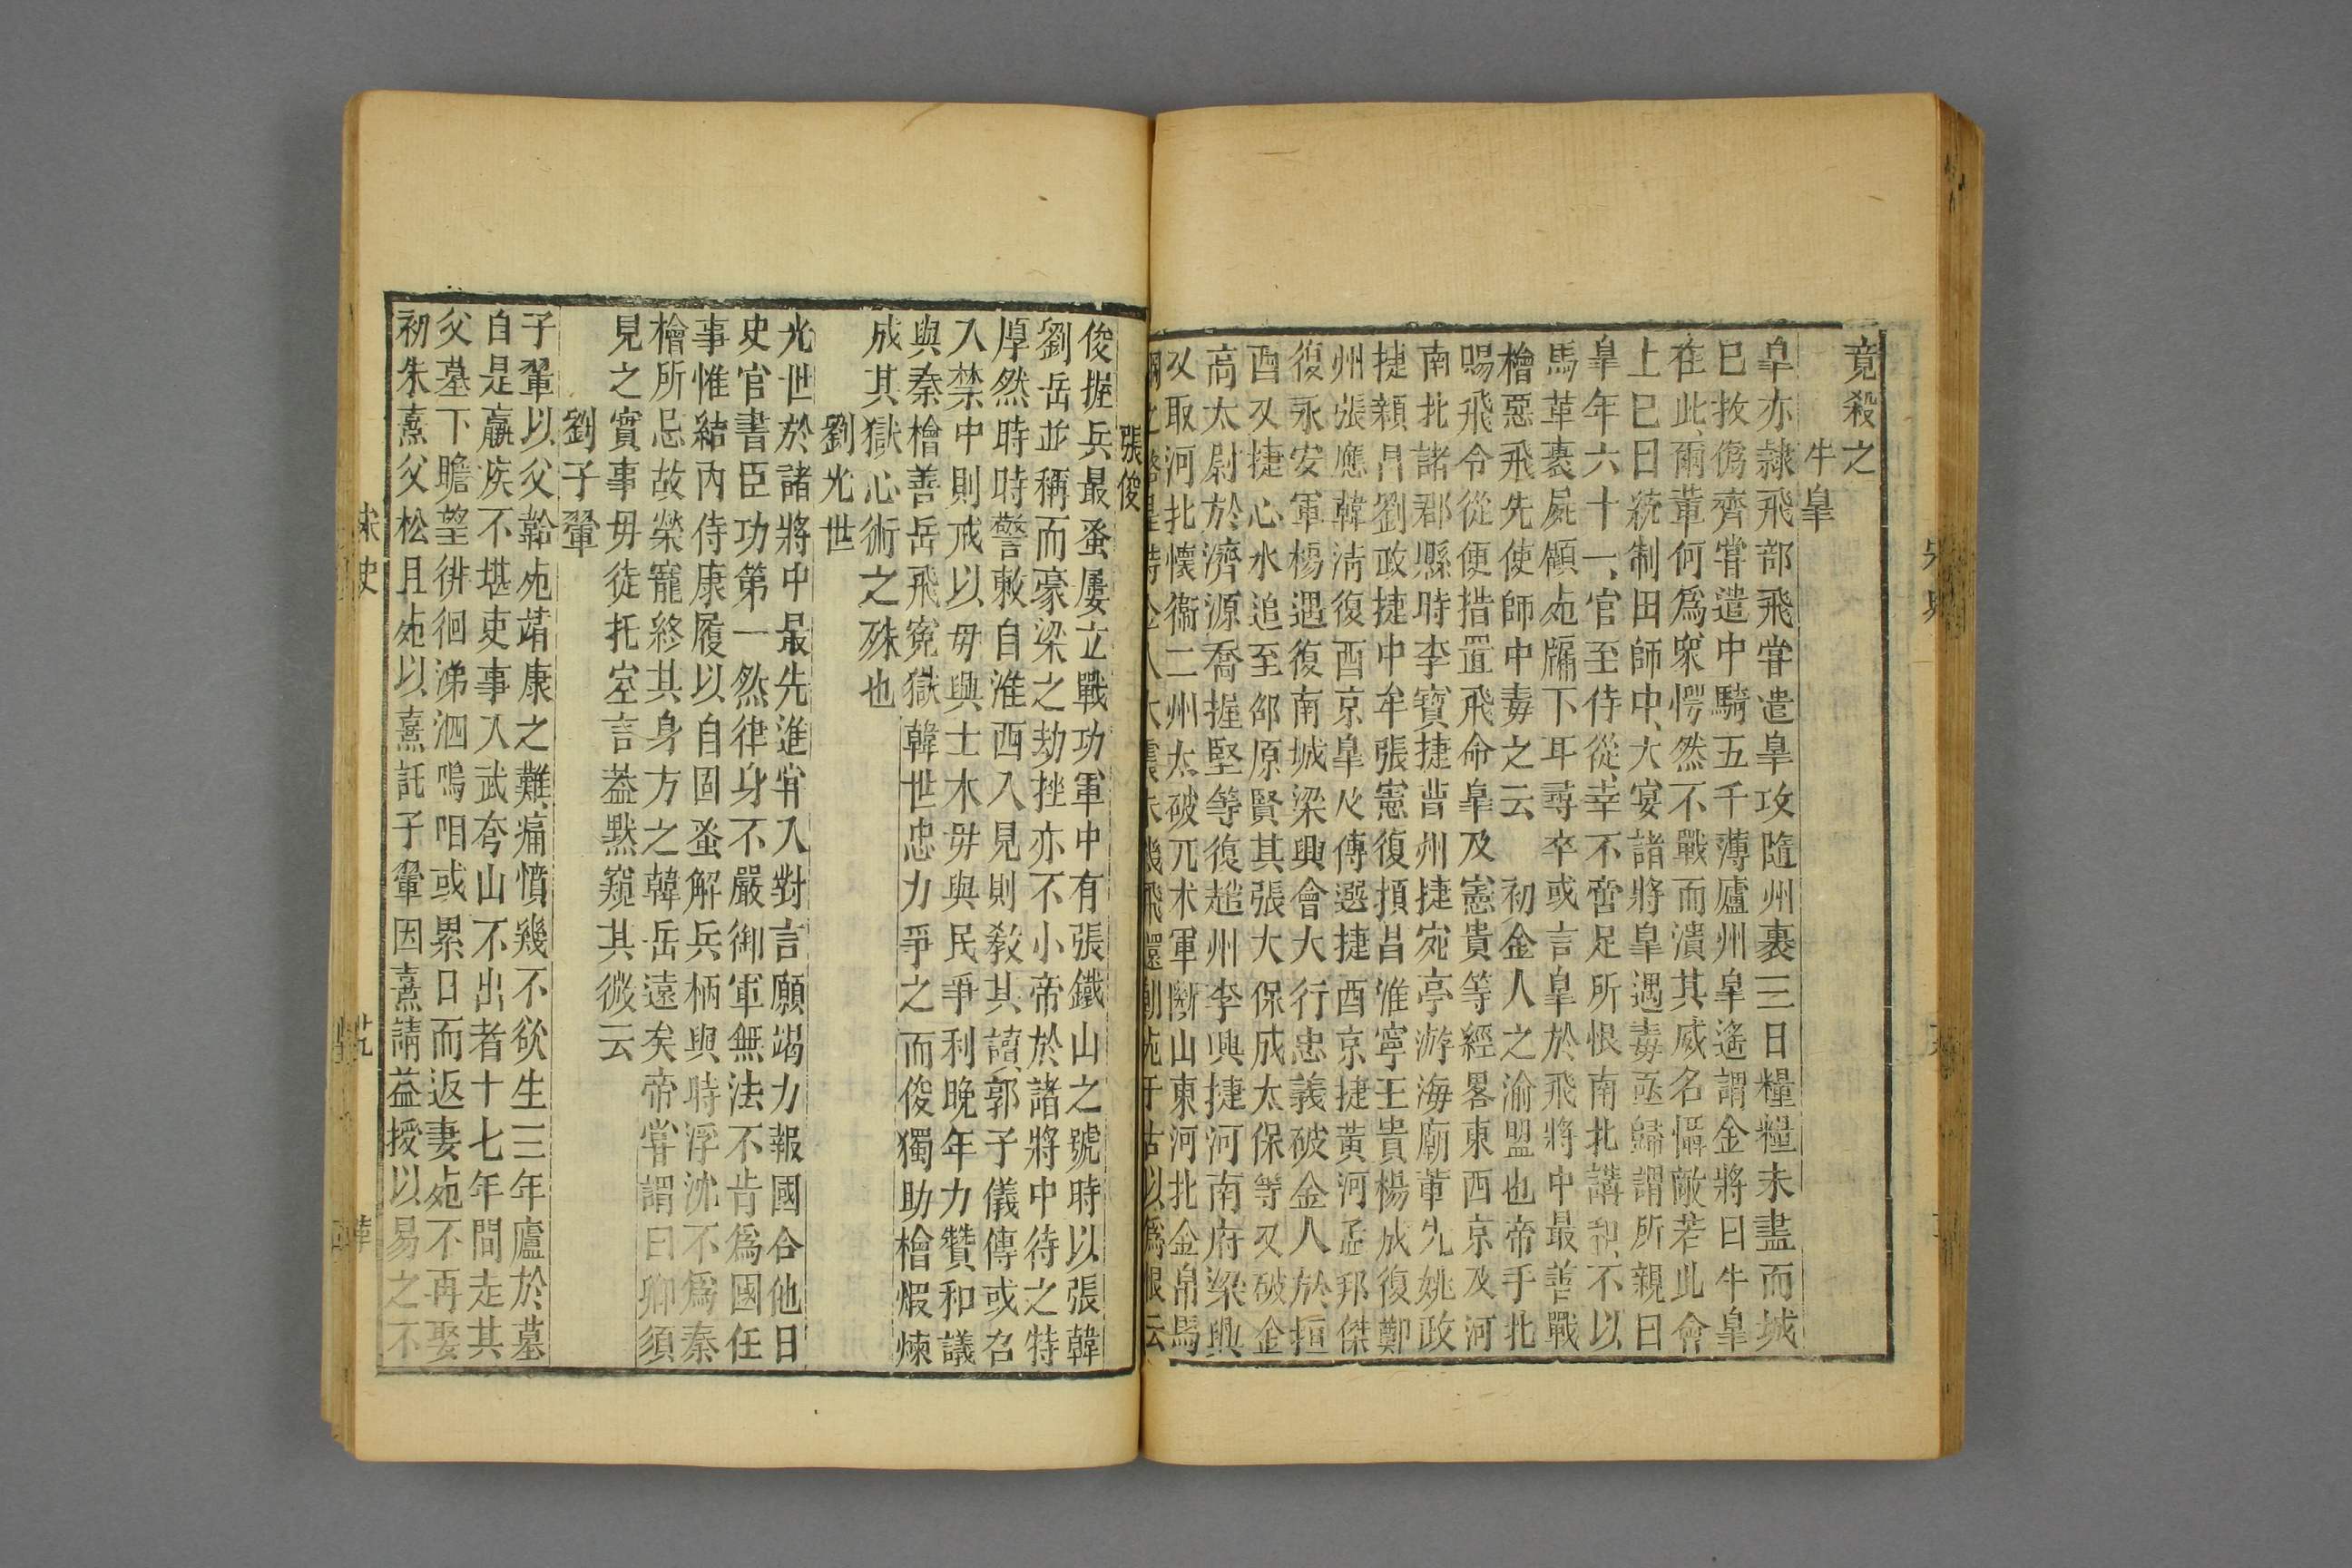 竟殺之
牛臯
臯亦隷飛部飛甞遣臯攻隨州裹三日糧糧未盡而城
巳拔僞齊甞遣中騎五千薄廬州臯遙謂金將曰牛臯
在此爾輩何爲衆愕然不戰而潰其威名懾敵若此會
上巳日統制田師中大宴諸將臯遇毒亟歸謂所親曰
臯年六十一官至侍從幸不啻足所恨南北講和不以
馬革裹屍顧死牖下耳尋卒或言臯於飛將中最善戰
檜惡飛先使師中毒之云　初金人之渝盟也帝手北
賜飛令從便措置飛命臯及憲貴等經畧東西京及河
南北諸郡縣時李寳捷曹州捷宛亭游海廟董先姚政
捷潁昌劉政捷中牟張憲復潁昌淮寧王貴楊成復鄭
州張應韓淸復西京臯及傳選捷西京捷黃河孟邦傑
復永安軍楊遇復南城梁興會大行忠義破金人於垣
酉又捷心水追至邵原賢其張大保成太保等又破金
高太尉於濟源喬握堅等復趙州李興捷河南府梁興
又取河北懷衞二州太破兀术軍斷山東河北金帛馬
綱之路是時金人大震未幾飛還朝死于古以爲恨云
張俊
俊握兵最蚤屢立戰功軍中有張鐵山之號時以張韓
劉岳並稱而豪梁之劫挫亦不小帝於諸將中待之特
厚然時時警敕自淮西入見則敎其讀郭子儀傳或召
入禁中則戒以毋興士木毋與民爭利晩年力贊和議
與秦檜善岳飛寃獄韓世忠力爭之而俊獨助檜煆煉
成其獄心術之殊也
劉光世
光世於諸將中最先進甞入對言願竭力報國合他日
史官書臣功第一然律身不嚴御軍無法不肯爲國任
事惟結內侍康履以自固蚤解兵柄與時浮沈不爲秦
檜所忌故榮寵終其身方之韓岳遠矣帝甞謂曰卿須
見之實事毋徒托空言葢黙窺其微云
劉子翬
子翬以父韐死靖康之難痛憤幾不欲生三年廬於墓
自是羸疾不堪吏事入武夸山不出者十七年間走其
父墓下瞻望徘徊涕泗嗚咽或累日而返妻死不再娶
初朱熹父松且死以熹託子翬因熹請益授以易之不
宋史